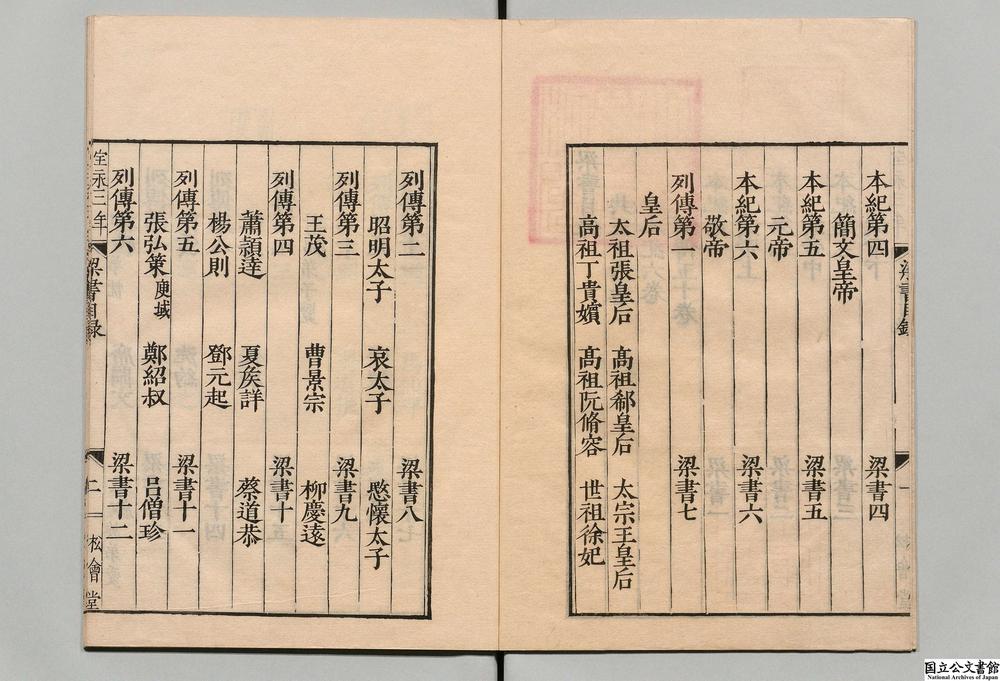 本紀第四 梁書四
簡文皇帝
本紀第五 梁書五
元帝
本紀第六 梁書六
敬帝
列傳第一 梁書七
皇后
太祖張皇后 髙祖郗皇后 太宗王皇后
髙祖丁貴嬪 髙祖阮脩容 世祖徐妃
梁書目録
一
列傳第二 梁書八
昭明太子 哀太子 愍懷太子
列傳第三 梁書九
王茂 曹景宗 柳慶遠
列傳第四 梁書十
蕭穎達 夏矦詳 蔡道恭
列傳第五 梁書十一
楊公則 鄧元起
張弘策庾域 鄭紹叔 吕僧珍
列傳第六 梁書十二
宝永三年 梁書目録 二 松會堂
国立公文書館
National Archives of Japan